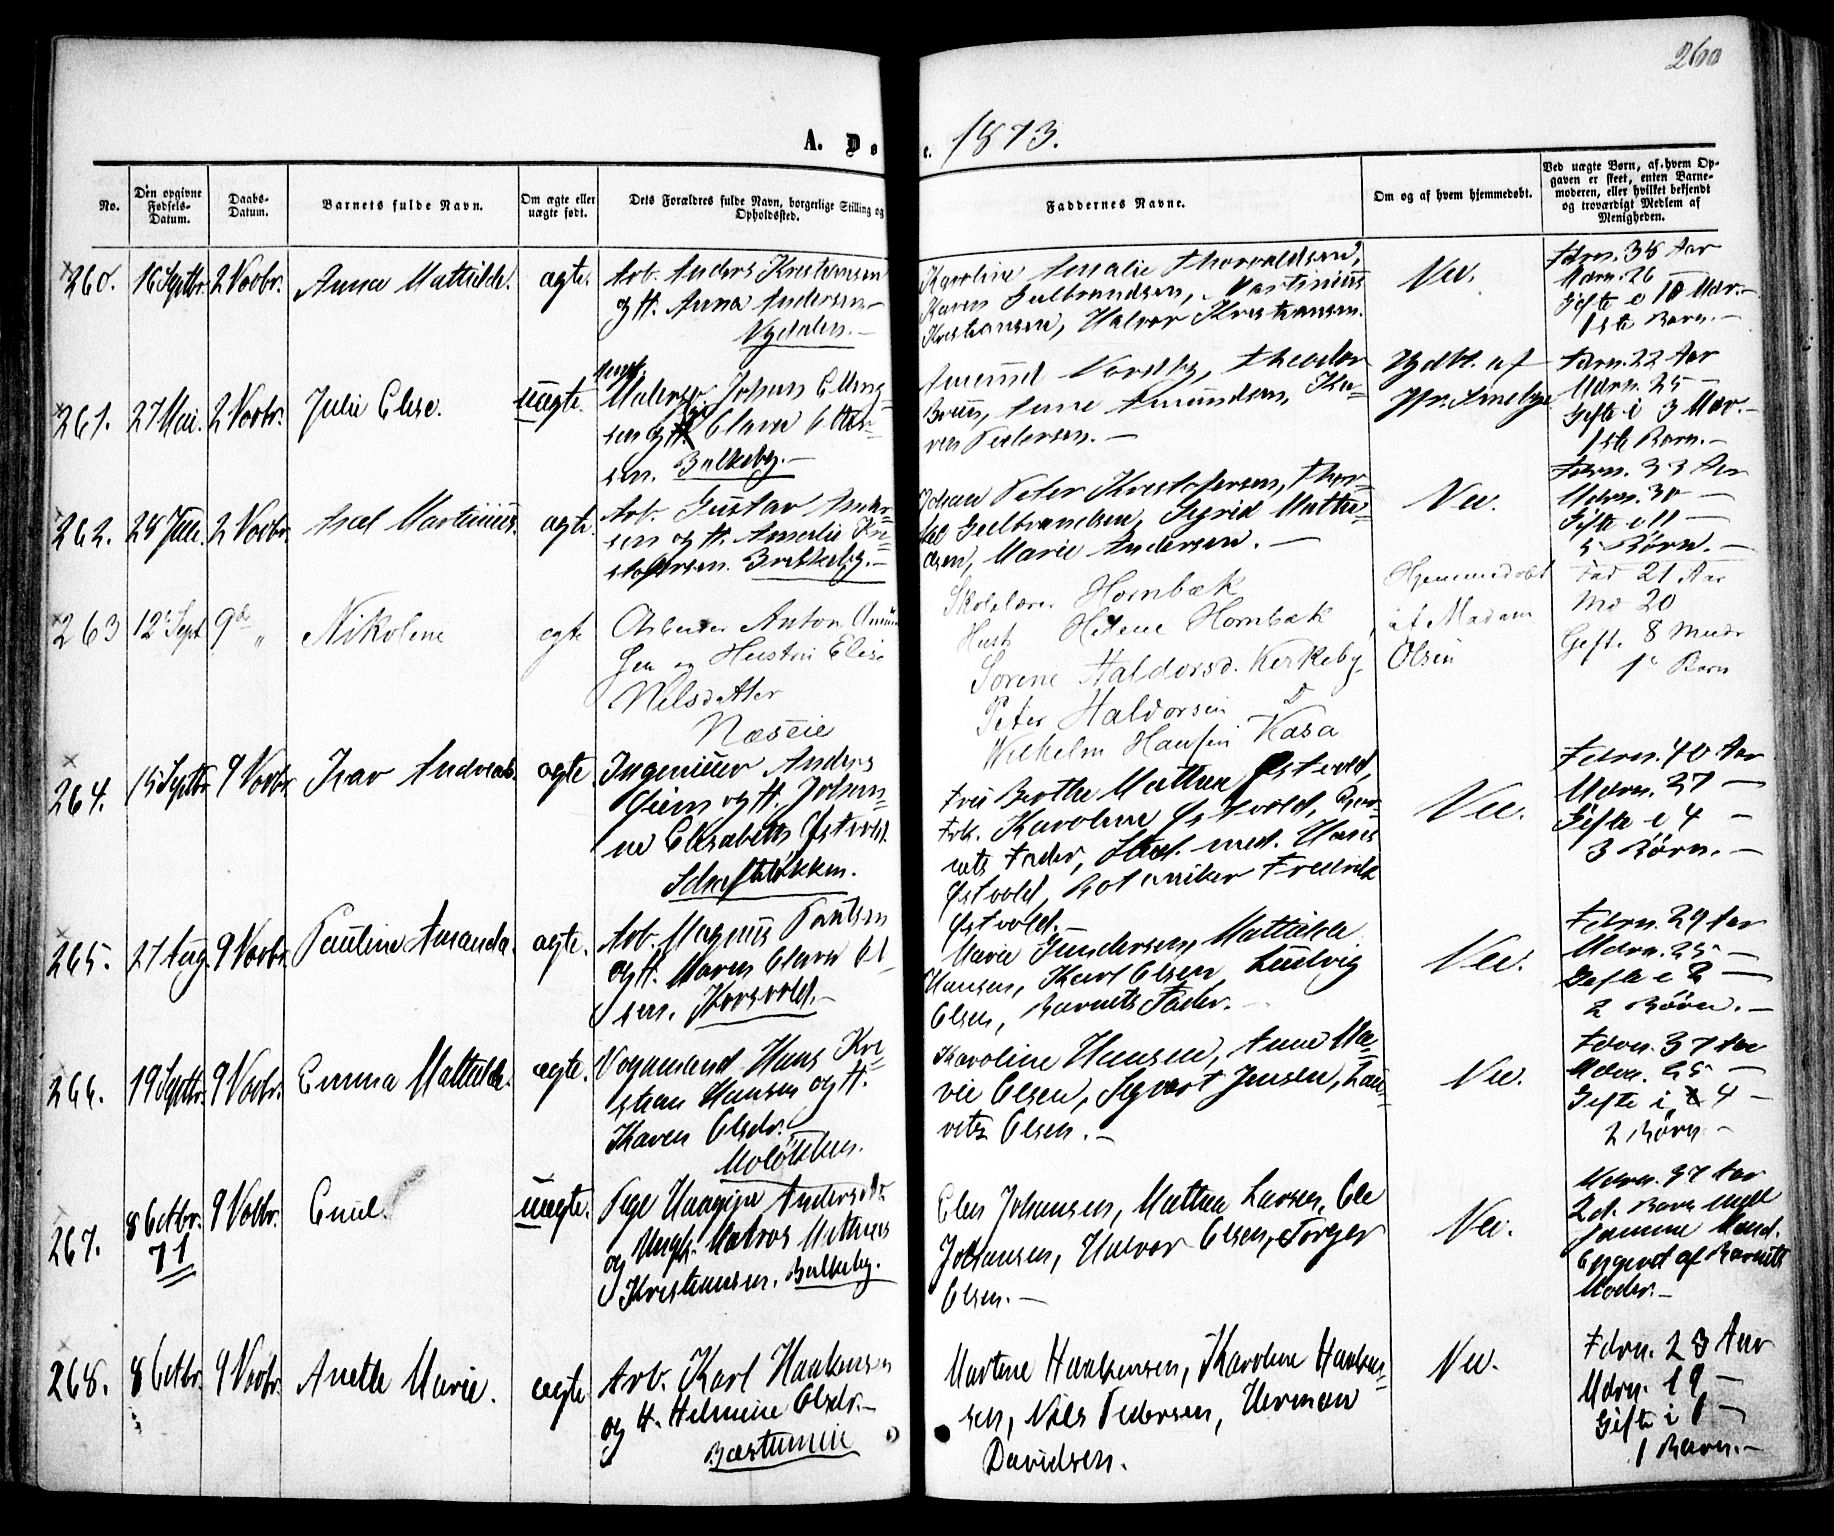 260
A. Dø
e. 1873.
No.
Den opgivne Fødsels-Datum.
Daabs-Datum.
Barnets fulde Navn.
Om ægte eller uægte født.
Dets Forældres fulde Navn, borgerlige Stilling og Opholdssted.
Faddernes Navne.
Om og af hvem hjemmedøbt.
Ved uægte Børn, af hvem Opgaven er skeet, enten Barnemoderen, eller hvilket bekjendt og troværdigt Medlem af Menigheden.
260. 16 Septbr. 2 Novbr. Anna Mathilde. ægte.
Arb. Anders Kristiansen
og H. Anna Andersen
Nydalen.
Karoline Amalie Thorvaldsen,
Karen Gulbrandsen, Martinius
Kristiansen, Halvor Kristiansen.
Nei.
Fdrn. 38 Aar
Mdrn. 26
Gifte i 10 Mdr.
1ste Barn.
261. 27 Mai. 2 Novbr. Julie Elise. uægte.
Malersv. Johan Elling-
sen og Clara Otter-
sen. Balkeby.
Amund Nordby, Theodor
Bruun, Anne Amundsen, Ka-
ren Pedersen.
Hjdbt. af
Fdrn. 22 Aar
Mdrn. 25 —
Gifte i 3 Mdr.
1ste Barn.
262. 28 Juli. 2 Novbr. Axel Martinius. ægte.
Arb. Gustav Ander-
sen og H. Amalie Kri-
stofersen. Briskeby.
Johan Peter Kristofersen, Thor-
Gulbrandsen, Sigrid Mathi-
esen, Marie Andersen.
Nei.
Fdrn. 33 Aar
Mdrn. 30 —
Gifte i 11 —
5 Børn.
263 12te Sept 9de " Nikoline ægte
Arbeider Anton Amun
sen og Hustru Elise
Nilsdatter
Næseie
Skolelærer Hornbæk
Hust Helene Hornbæk
Sorine Haldorsd. Kirkeby
Peter Haldorsen
Wilhelm Hansen Kasa
Hjemmedobt
af Madam
Olsen
Fad 21 Aar
Mo 20
Gift 8 Mndr
1e Barn
264. 15 Septbr. 9 Novbr. Ivar Andreas. ægte.
Ingeniieur Anders
og H. Johan-
ne Elisabeth Østvold.
Schafteløkken.
Fru Berthe Mathea Østvold,
Frk. Karoline Østvold, Bar-
nets Fader, Stud. med. Hans
Østvold, Botaniker Fredrik
Østvold.
Nei.
Fdrn. 40 Aar
Mdrn. 37 —
Gifte i 4 —
3 Børn.
265. 27 Aug. 9 Novbr. Pauline Amanda. ægte.
Arb. Magnus Paulsen
og H. Maren Clara Ol-
sen. Korsvold.
Marie Gundersen, Mathilde
Hansen, Karl Olsen, Ludvig
Olsen, Barnets Fader.
Nei.
Fdrn. 29 Aar
Mdrn. 25 —
Gifte i 2 —
2 Børn.
266. 19 Septbr. 9 Novbr. Emma Mathilde. ægte.
Vognmand Hans Kri-
stian Hansen og H.
Karen Olsdr.
Moløkken.
Karoline Hansen, Anne Ma-
rie Olsen, Sigvart Jensen, Lau-
ritz Olsen.
Nei.
Fdrn. 37 Aar
Mdrn. 25 —
Gifte i 4 —
2 Børn
267. 8 Octbr. 71 9 Novbr. Emil. uægte.
Pige Andersdtr.
og Ungk. Matros
Kristiansen. Balkeby.
Elen Johansen, Mathea Larsen, Ole
Johansen, Halvor Olsen, Torger
Olsen.
Nei.
Mdrn. 37 Aar
2det Barn med
samme Mand.
Opgivet af Barnets
Moder.
268. 8 Octbr. 9 Novbr. Anette Marie. ægte
Arb. Karl Haakensen
og H. Helmine Olsdr.
Bæstumeie
Martine Haakensen, Karoline Haaken-
sen, Nils Pedersen, Herman
Davidsen.
Nei.
Fdrn. 23 Aar
Mdrn. 19 —
Gifte i 1 —
1 Barn.